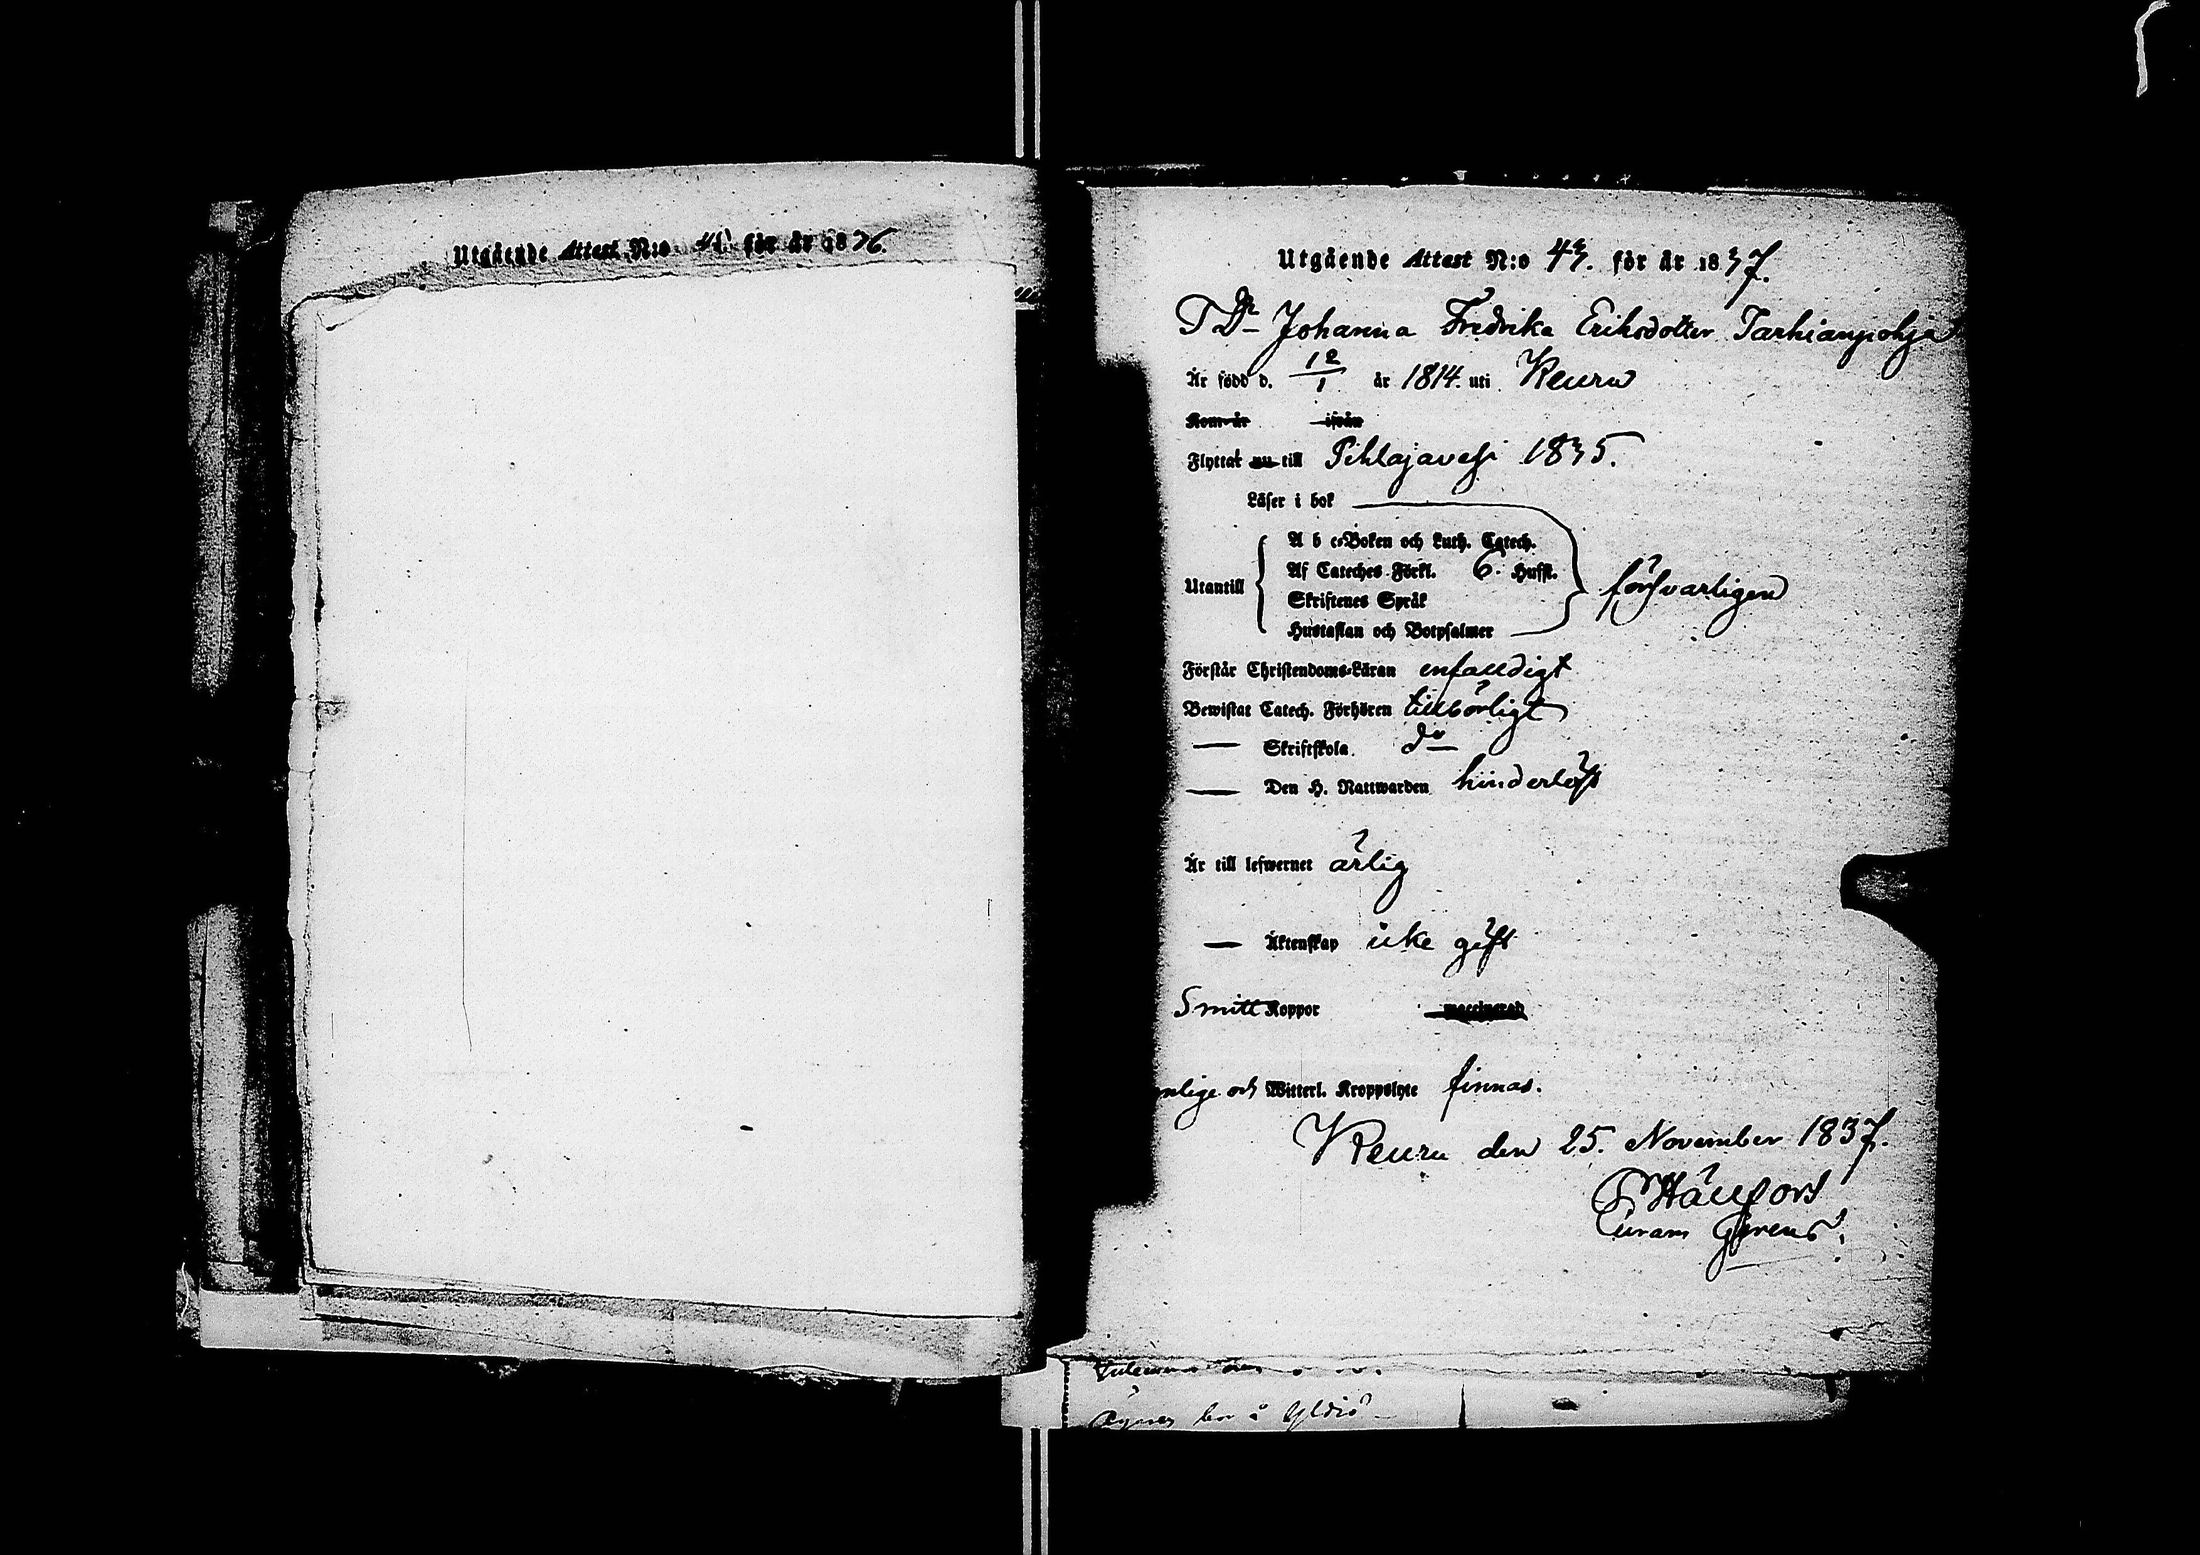 Utgående Attest N:o för år 1876.
Utgående Attest N:o 43. för år 1837.
T Dr Johanna Fredrika Eriksdotter Tarhianpohja
Är född d. 12/1 år 1814. uti Keuru
Kom år ifrån
Flyttat nu till Pihlajavesi 1835.
Läser i bok
A b c-Boken och Luth. Catech.
Af Cateches Förkl. 6. Hufst.
Utantill
Skriftenes Språk
Hustaflan och Botpsalmer
försvarligen
Förstår Christendoms-Läran enfaldigt
Bewistat Catech. Förhören tillbörligt
— Skriftskola do
— Den H. Nattwarden hinderlöst
Är till lefwernet ärlig
— Äktenskap icke gift
Smitt Koppor waccinerad
nlige och Witterl. Kroppslyte finnas.
Keuru den 25. November 1837.
Hällfors
Curam Gerens.